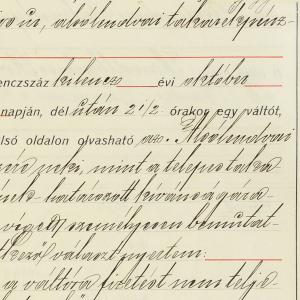 úr, alsólendvai takarékpénz-
enczszáz kilencz évi október
napján, dél után 2 1/2 órakor egy váltót,
lsó oldalon olvasható Alsólendvai
neki, mint a telepes taka
határozott kívánságára
végett személyesen bemutat-
választ nyertem:
a váltóra fizetést nem telje-